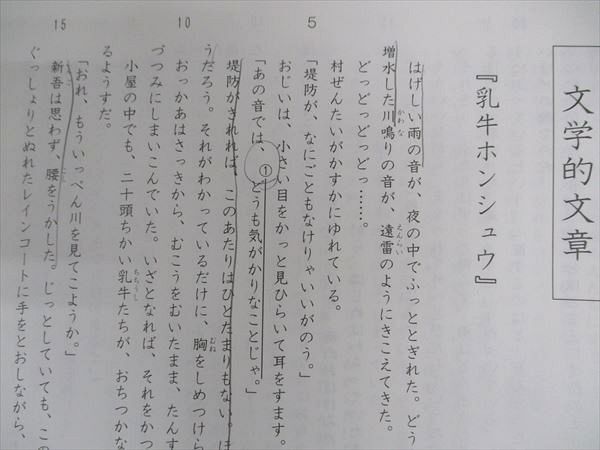 文学的文章
『乳牛ホンシュウ』
はげしい雨の音が、夜の中でふっととぎれた。どう
増水した川鳴りの音が、遠雷のようにきこえてきた。
かわな
えんらい
どっどっどっどっ……。
村ぜんたいがかすかにゆれている。
5
「堤防が、なにごともなけりゃいいがのう。」
おじいは、小さい目をかっと見ひらいて耳をすます。
「あの音では、①どうも気がかりなことじゃ。」
堤防がきれれば、このあたりはひとたまりもない。ほ
うだろう。それがわかっているだけに、胸をしめつけら
むね
10
おっかあはさっきから、むこうをむいたまま、たんす
づつみにしまいこんでいた。いざとなれば、それをかつ
小屋の中でも、二十頭ちかい乳牛たちが、おちつかな
ちちうし
るようすだ。
「おれ、もういっぺん川を見てこようか。」
新吾は思わず、腰をうかした。じっとしていても、この
15
ぐっしょりとぬれたレインコートに手をとおしながら、